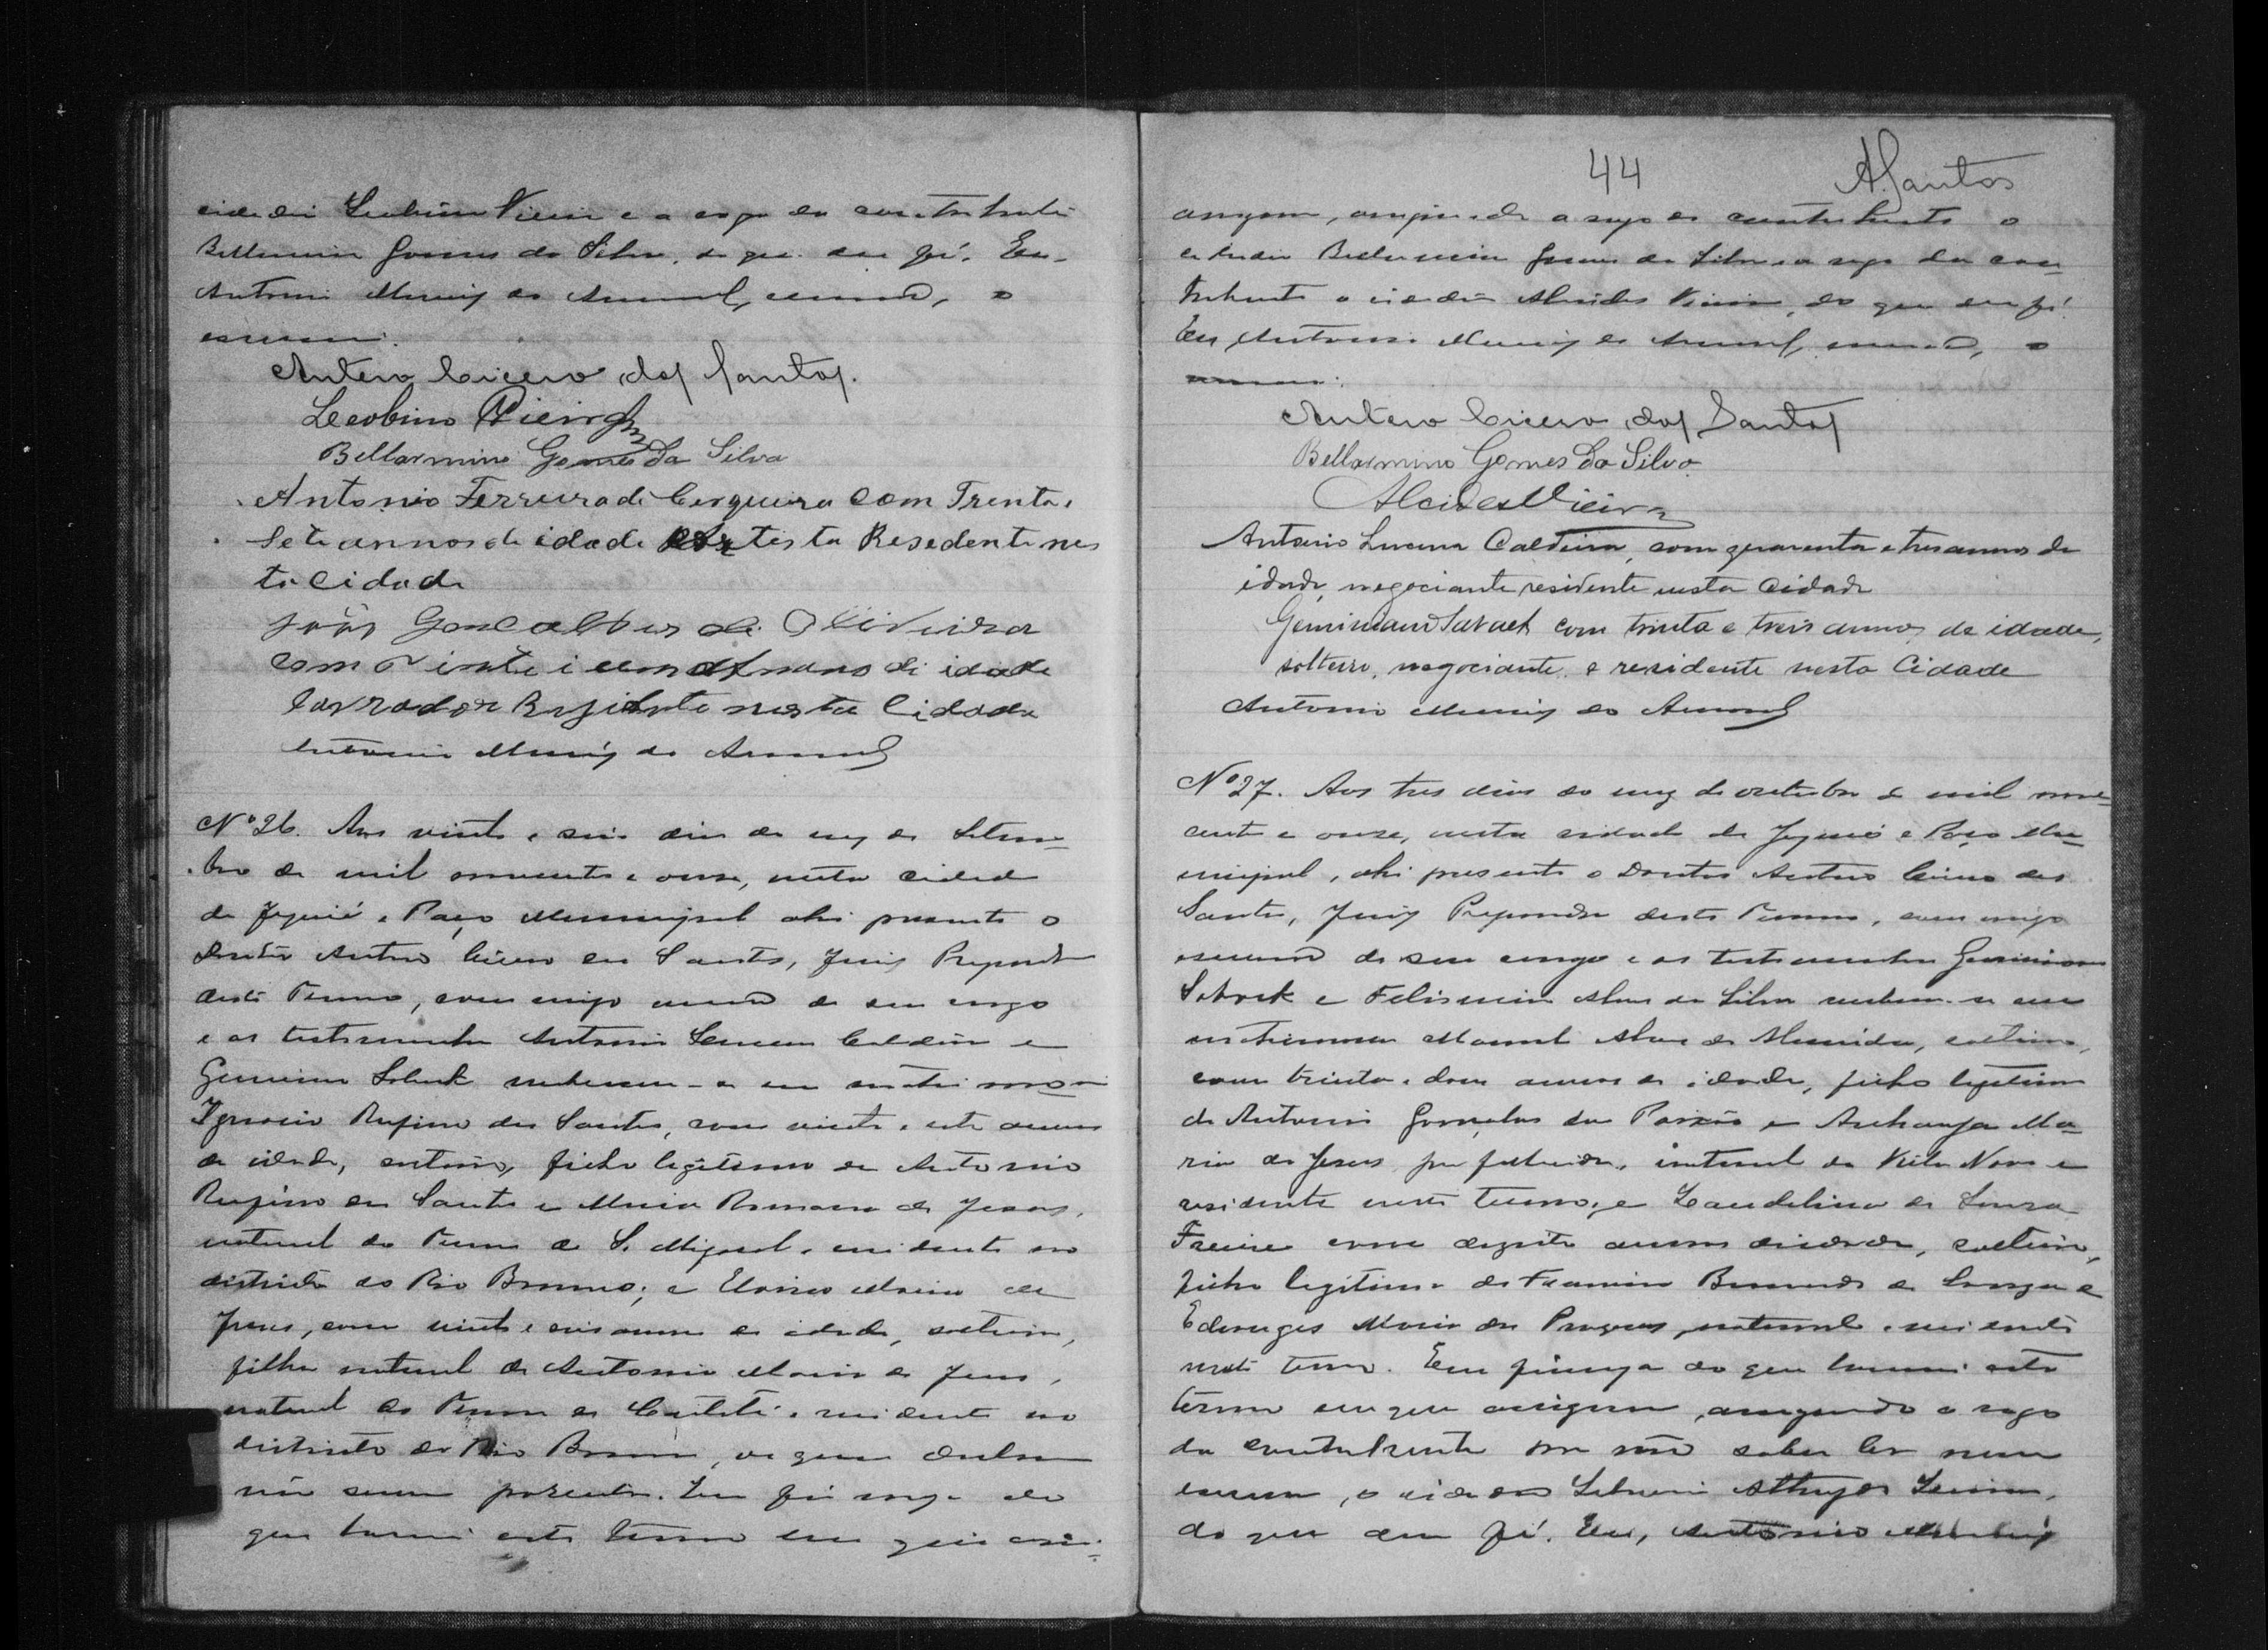 cidadão Leobino Vieira e a rogo da contrahente
Bellarmino Gomes da Silva, do que dou fé. Eu,
Antonio Muniz do Amaral, escrivão, o
escrevi.
Antero Cicero dos Santos.
Leobino Vieira
Bellarmino Gomes da Silva
Antonio Ferreira de Cerqueira com Trenta
Sete annos de idade Artista Resedente nes
ta cidade
João Goncalves de Oliveira
com vinte i um annos di idade
lavrador Rezidente nesta Cidade
Antonio Muniz do Amaral
Nº 26. Aos vinte e seis dias do mez de Setem-
bro de mil novecentos e onze, nesta cidade
de Jequié e Paço Municipal ahi presente o
Doutor Antero Cicero dos Santos, Juiz Preparador
deste Termo, com migo escrivão de seu cargo
e as testemunhas Antonio Lucena Caldeira e
Geminiano Saback receberam-se em matrimonio
Ignacio Rufino dos Santos, com vinte e sete annos
de idade, solteiro, filho legitimo de Antonio
Rufino dos Santos e Maria Romana de Jesus,
natural do Termo de S. Miguel e residente no
districto do Rio Branco; e Maria de
Jesus, com vinte e seis annos de idade, solteira,
filha natural de Antonia Maria de Jesus,
natural do Termo de Caetité e residente no
districto do Rio Branco, os quaes declaram
não serem parentes. Em firmeza do
que lavrei este termo em que assi-
44 A. Santos
agnam, assignando a rogo do contrahente o
cidadão Bellarmino Gomes da Silva e a rogo da con-
trahente o cidadão Alcides Vieira, do que dou fé.
Eu, Antonio Muniz do Amaral, escrivão, o
escrevi.
Antero Cicero dos Santos
Bellarmino Gomes da Silva
Alcides Vieira
Antonio Lucena Caldeira, com quarenta e tres annos de
idade, negociante, residente nesta Cidade
Geminiano Saback com trinta e treis annos de idade,
solteiro, negociante, e residente nesta Cidade
Antonio Muniz do Amaral
Nº 27. Aos tres dias do mez de outubro de mil nove-
centos e onze, nesta cidade de Jequié e Paço Mu-
nicipal, ahi presente o Doutor Antero Cicero dos
Santos, Juiz Preparador deste Termo, com migo
escrivão de seu cargo e as testemunhas Geminiano
Saback e Felismino Alves da Silva receberam-se em
matrimonio Manoel Alves de Almeida, solteiro,
com trinta e dous annos de idade, filho legitimo
de Antonio Gonçalves da Paixão e Archanja Ma-
ria de Jesus, já fallecida, natural de Villa Nova e
residente neste termo; e Laudelina de Souza
Freire com dezoito annos de idade, solteira,
filha legitima de Francisco Bernardo de Souza e
Edwuges Maria dos Prazeres, natural e residente
neste termo. Em firmeza do que lavrei este
termo em que assignam, assignando a rogo
da contrahente por não saber ler nem
escrever, o cidadão Athayde
do que dou fé. Eu, Antonio Muniz